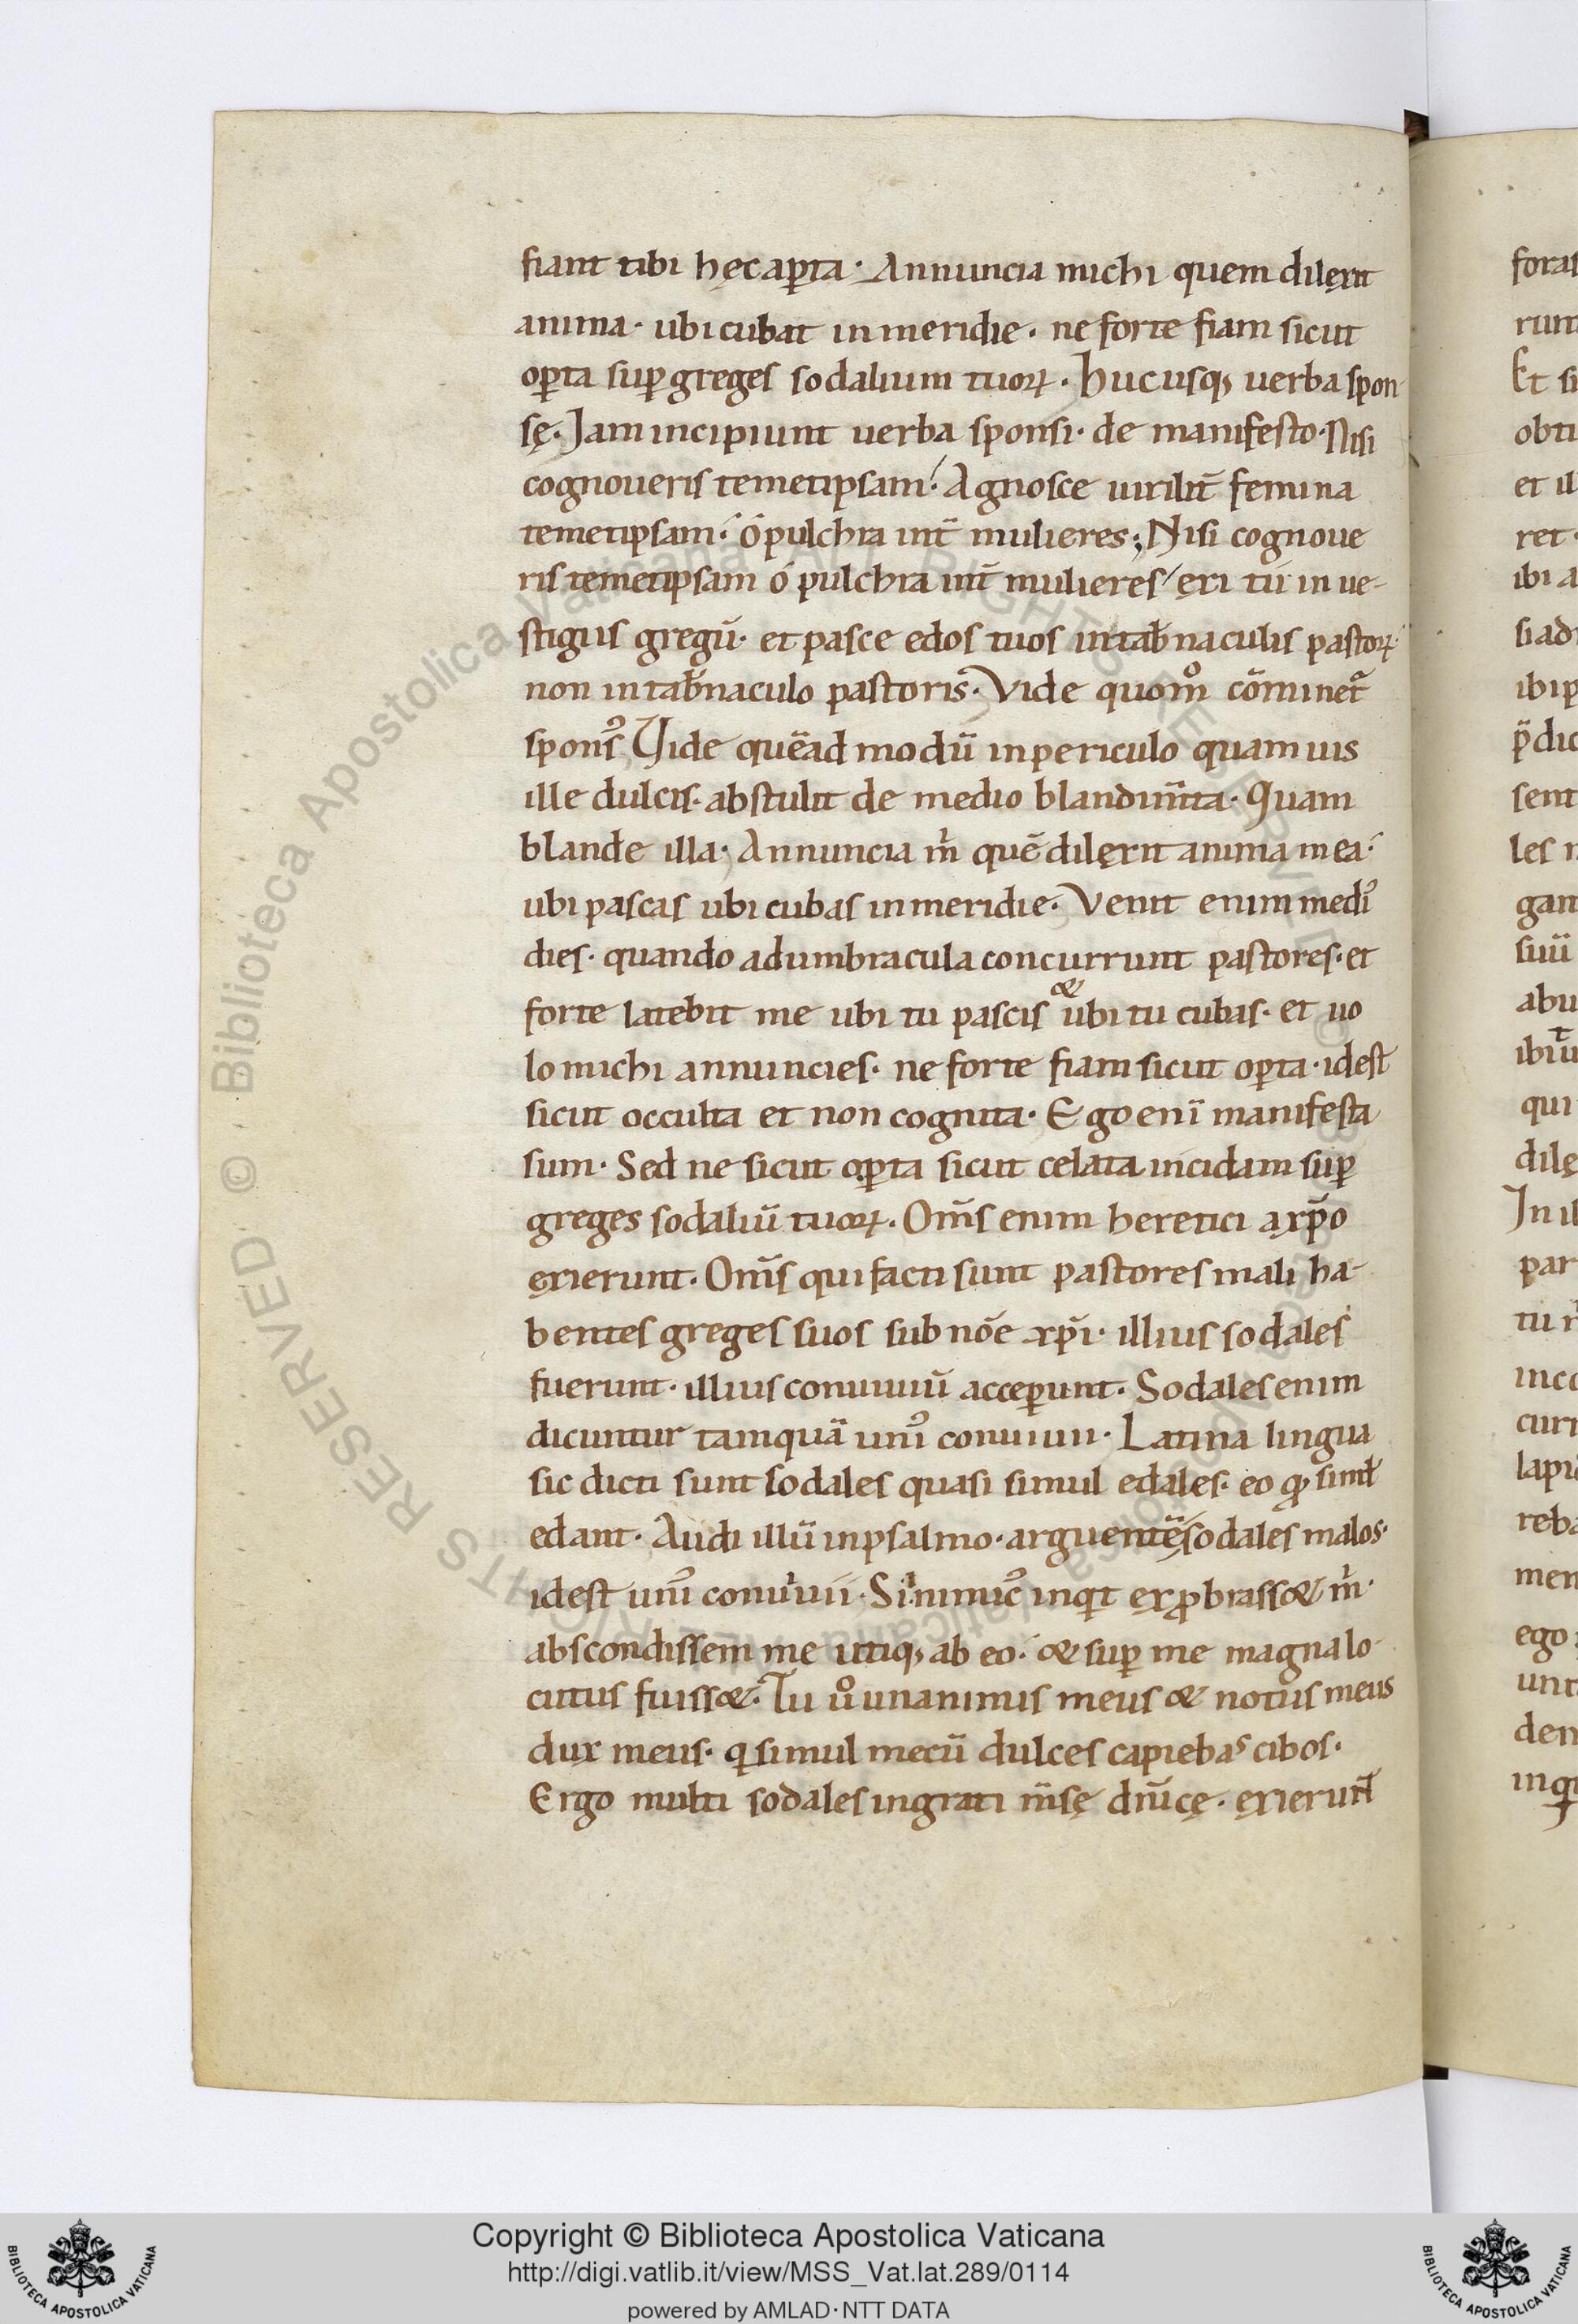 fiant tibi hęc aꝑta· Annuncia michi quem dilęxit
anima· ubi cubat in meridie· ne forte fiam sicut
oꝑta suꝑ greges sodalium tuoꝝ· Hucusq; uerba spon-
sę· Jam incipiunt uerba sponsi· de manifesto· Nisi
cognoueris temetipsam· Agnosce uirilit̄ femina
temetipsam· ó pulchra int̄ mulieres; Nisi cognoue
ris temetipsam ó pulchra int̄ mulieres ęxi tú in ue-
stigiis gregū· et pasce edos tuos in tab̄naculis pastoꝝ·
non in tab̄naculo pastoris· Vide quom̊ cōminet᷑
spons᷒ Vide quēadmodū in periculo quamuis
ille dulcis· abstulit de medio blandim̄ta· Quam
blande illa· Annuncia m̄ quē dilęxit anima mea·
ubi pascas ubi cubas in meridie· Venit enim medi᷒
dies· quando ad umbracula concurrunt pastores· et
forte latebit me ubi tu pascis & ubi tu cubas· et uo
lo michi annuncies· ne forte fiam sicut oꝑta· idest
sicut occulta et non cognita· Ego enī manifesta
sum· Sed ne sicut oꝑta sicut celata incidam suꝑ
greges sodaliū tuoꝝ· Om̄s enim heretici a xp̄o
ęxierunt· Om̄s qui facti sunt pastores mali ha-
bentes greges suos sub nōe xp̄i· illius sodales
fuerunt· illius conuiuiū acceꝑunt· Sodales enim
dicuntur tamquā uni᷒ conuiuii· Latina lingua
sic dicti sunt sodales quasi simul edales· eo qđ simł
edant· Audi illū in psalmo· arguentē sodales malos·
idest uni᷒ conuiuii· Si inimic᷒ inqt exꝓbrass& m̄·
abscondissem me utiq; ab eo· & suꝑ me magna lo-
cutus fuiss&· Tu ů unanimis meus & notus meus
dux meus· q simul mecū dulces capiebas cibos·
Ergo multi sodales ingrati m̄sę dn̄icę· ęxierunt
Copyright © Biblioteca Apostolica Vaticana
http://digi.vatlib.it/view/MSS_Vat.lat.289/0114
powered by AMLAD·NTT DATA